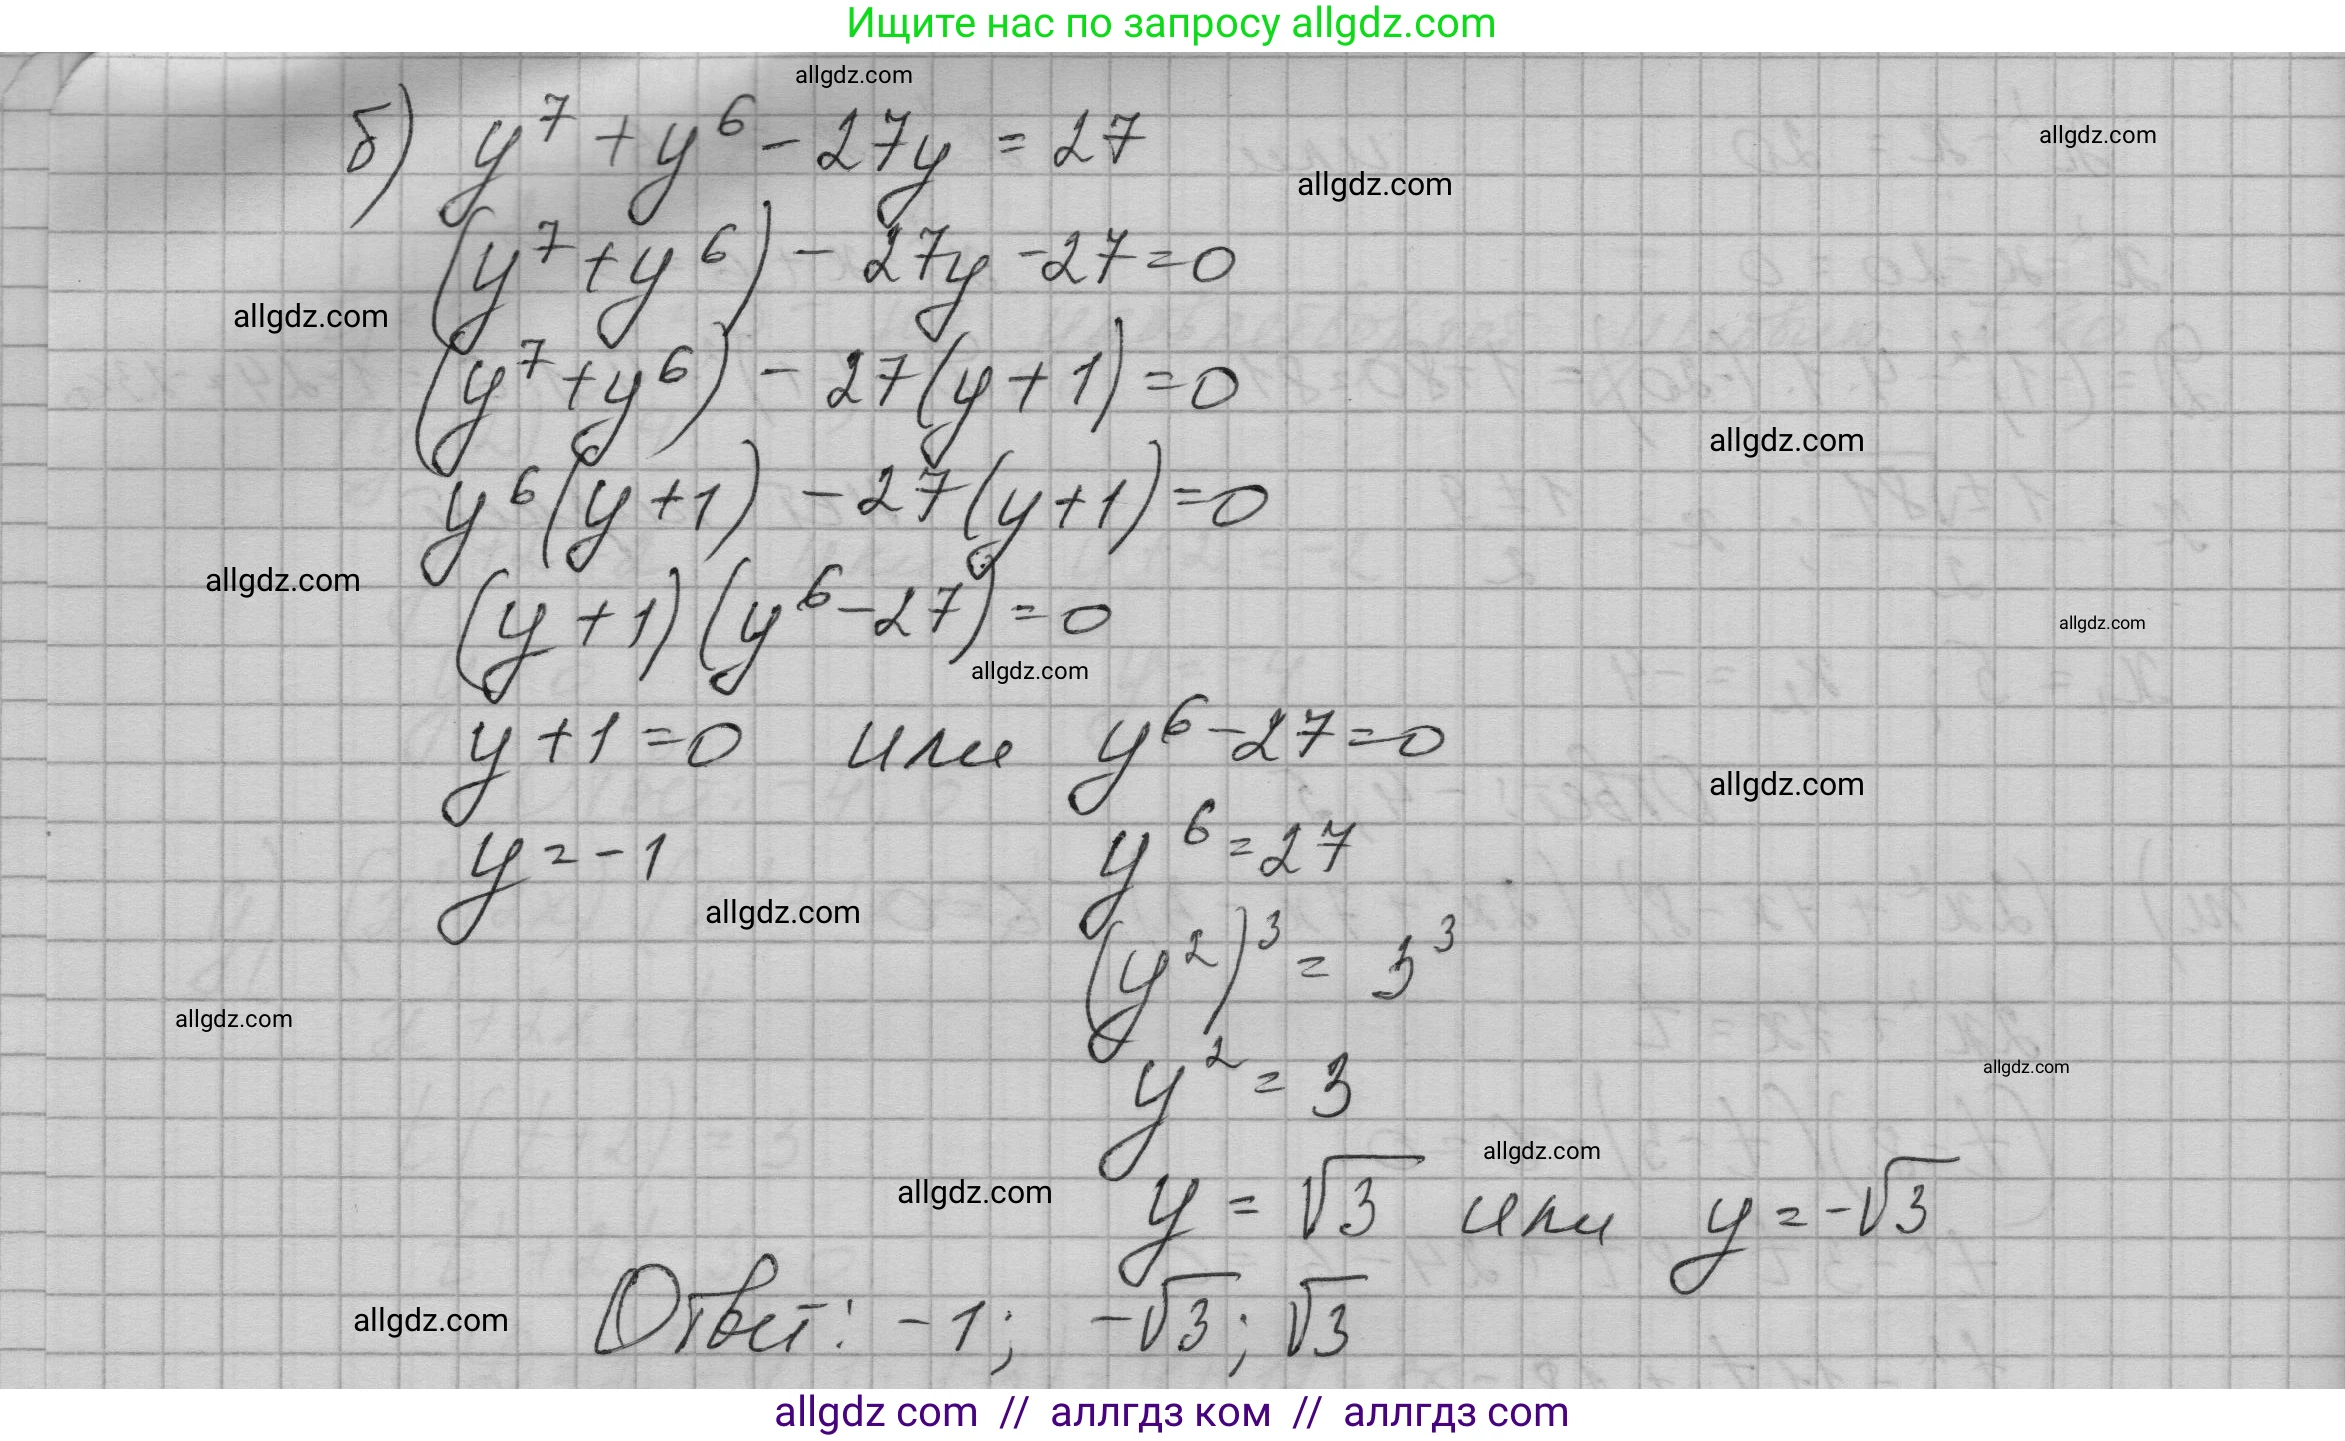 Ищите нас по запросу allgdz.com
allgdz.com
б) y⁷ + y⁶ - 27y = 27
allgdz.com
allgdz.com
(y⁷ + y⁶) - 27y - 27 = 0
allgdz.com
(y⁷ + y⁶) - 27(y + 1) = 0
allgdz.com
y⁶(y + 1) - 27(y + 1) = 0
allgdz.com
(y + 1)(y⁶ - 27) = 0
allgdz.com
allgdz.com
y + 1 = 0 или y⁶ - 27 = 0
allgdz.com
y = -1 y⁶ = 27
allgdz.com
(y²)³ = 3³
allgdz.com
y² = 3
allgdz.com
allgdz.com
allgdz.com
y = √3 или y = -√3
allgdz.com
Ответ: -1; -√3; √3
allgdz com // аллгдз ком // аллгдз com